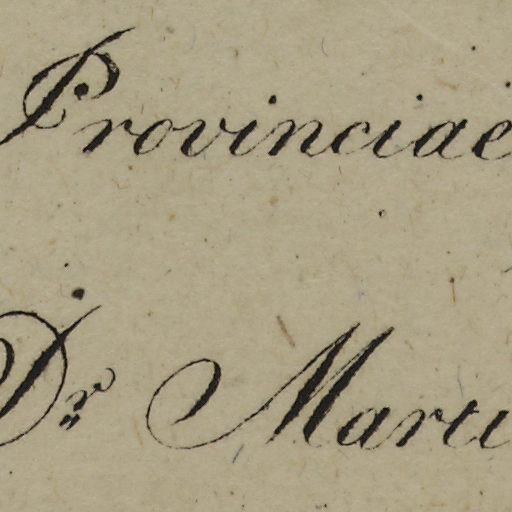 Provinciae
Dr Marti